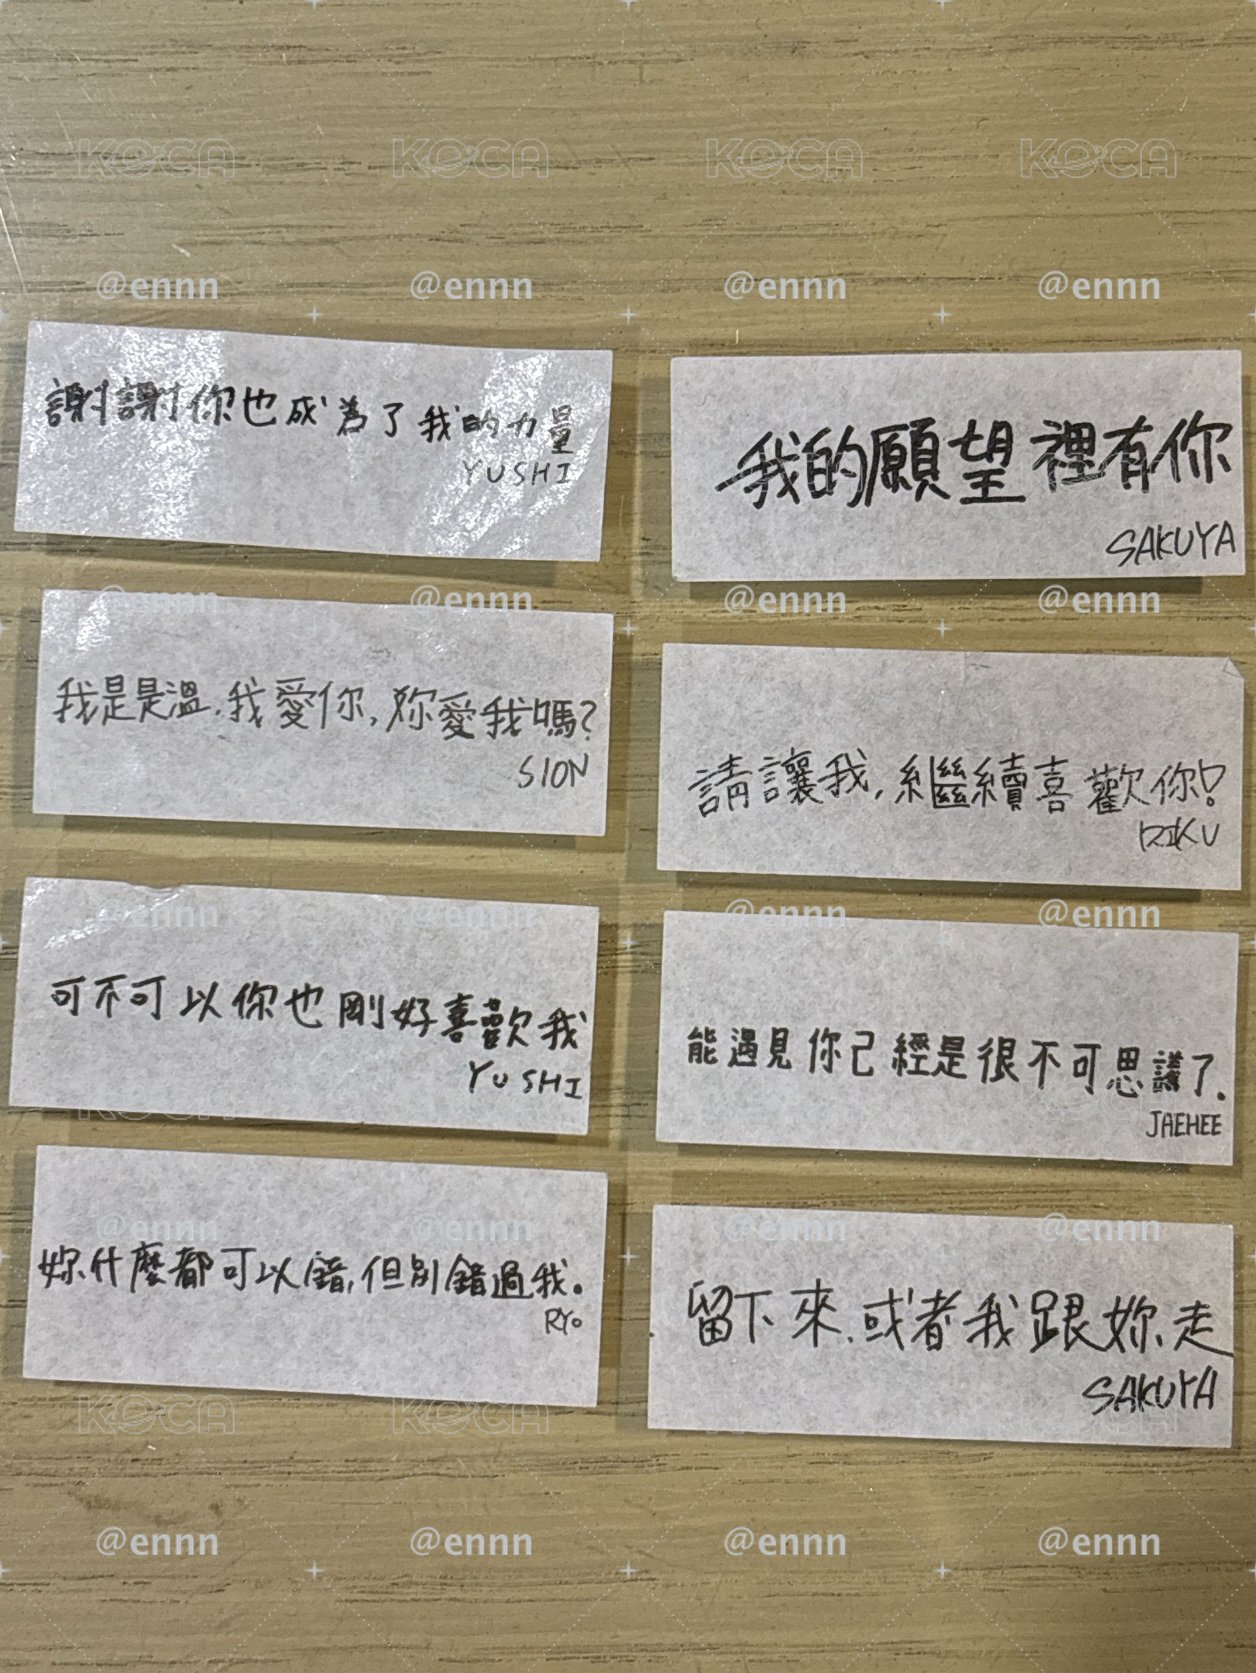 謝謝你也成為了我的力量
YUSHI
我是是溫.我愛你,妳愛我嗎?
SION
可不可以你也剛好喜歡我
YUSHI
妳什麼都可以錯,但別錯過我。
RYO
我的願望裡有你
SAKUYA
請讓我,繼續喜歡你!
RIKU
能遇見你己經是很不可思議了.
JAEHEE
留下來.或者我跟妳走
SAKUYA
KOCA KOCA KOCA KOCA
@ennn @ennn @ennn @ennn
@ennn @ennn @ennn @ennn
@ennn @ennn @ennn @ennn
@ennn @ennn @ennn @ennn
KOCA KOCA
@ennn @ennn @ennn @ennn